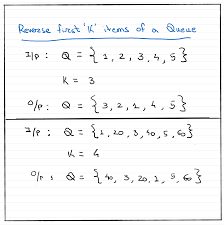 Reverse first 'K' items of a Queue
I/P : Q = { 1, 2, 3, 4, 5 }
K = 3
O/P : Q = { 3, 2, 1, 4, 5 }
I/P : Q = { 1, 20, 3, 40, 5, 60 }
K = 4
O/P : Q = { 40, 3, 20, 1, 5, 60 }